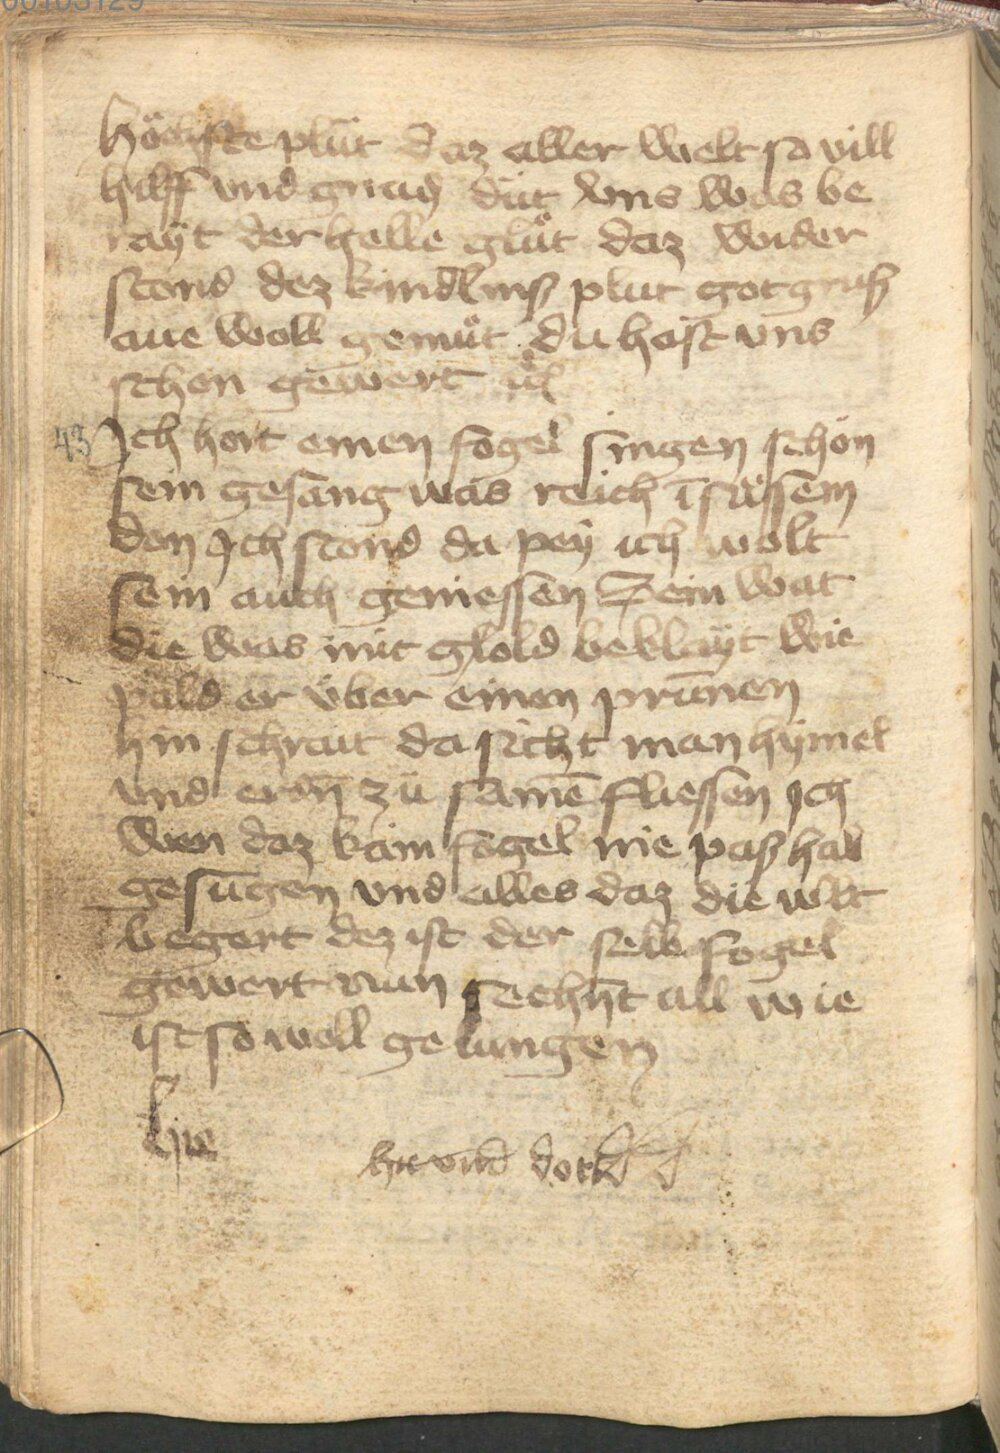 00105129
höchste plüt daz aller welt so vill
hilff vnd gnad düt vns was be
rayt der helle glüt daz wider
stond dez kindlins plut got grus
aue woll gemüt du hast vns
schon gewert
43 Ich hort einen fogel singen schön
sein gesang was reich ī süssem
don Ich stond da pey ich wolt
sein auch geniessen Sein wat
die was mit glold beklayt wie
pald er über einen prūnen
hin schrait da sicht man hymel
vnd erdn zü samē fliessen Ich
wen daz kain fogel nie pas hab
gesūgen vnd alles daz die wlt
begert dez ist der selb fogel
gewert nun seehnt all wie
ist so woll gelungen
hie
hie vnd dort